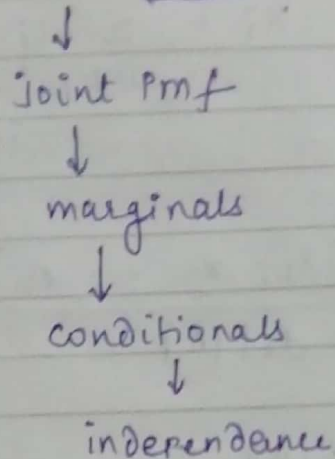 ↓
joint Pmf
↓
marginals
↓
conditionals
↓
independence